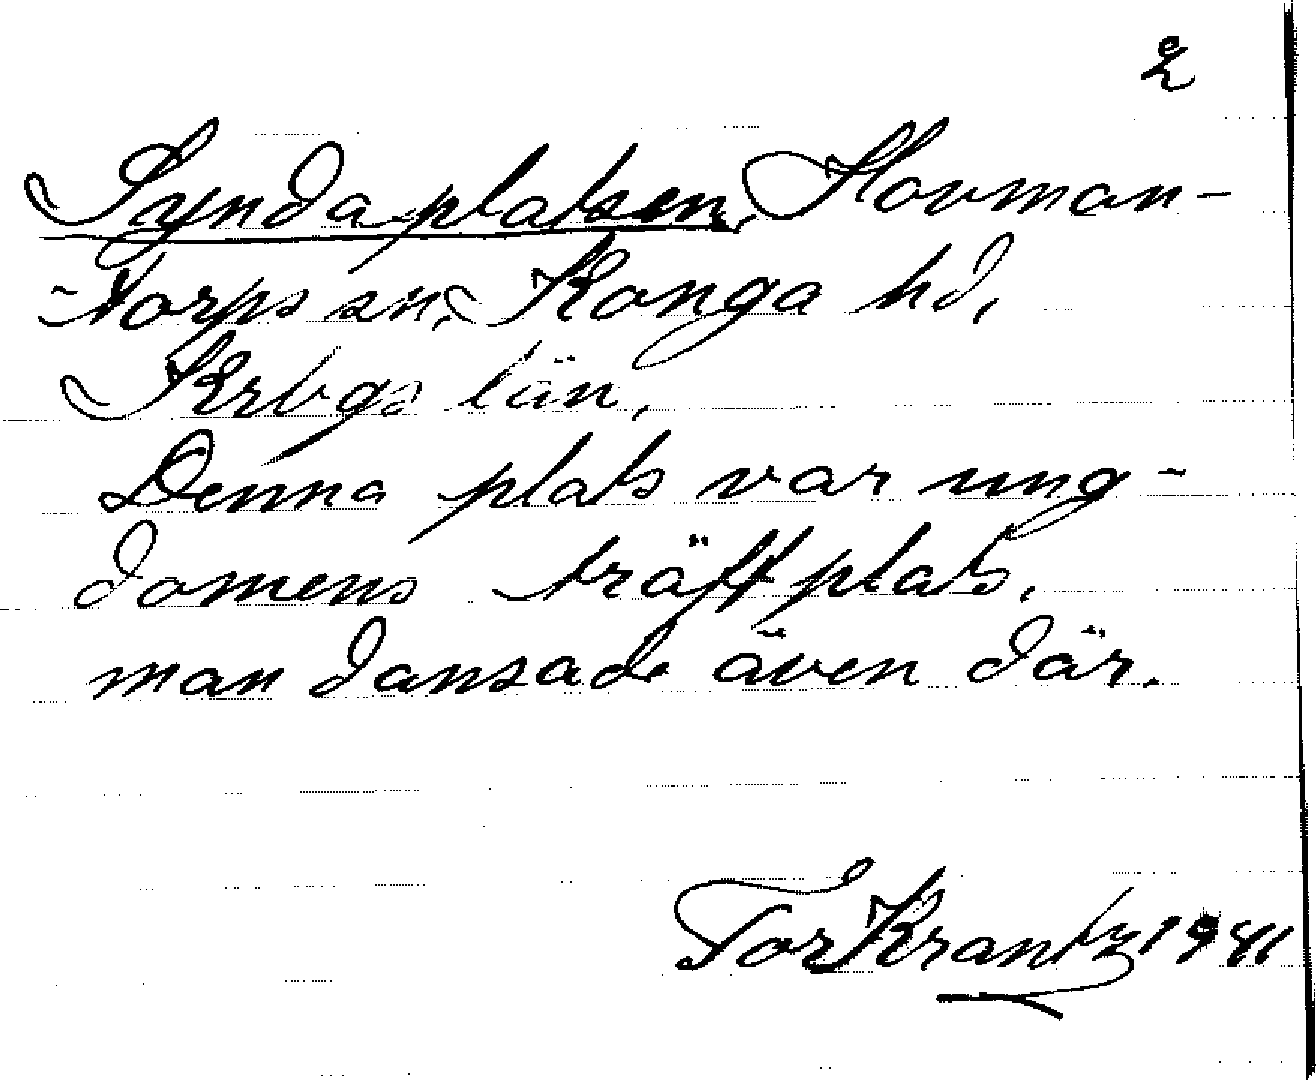 2
Syndaplatsen, Hovman-
-torps sn, Konga hd,
Krbgs län,
Denna plats var ung-
domens träffplats.
man dansade även där.
Tor Krantz 1941